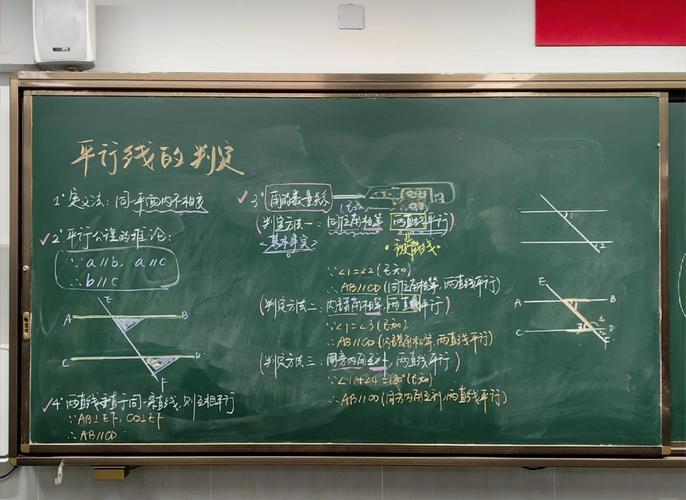 平行线的判定
1° 定义法：同一平面内不相交
✓2° 平行公理的推论：
∵ a∥b, a∥c
∴ b∥c
E
A B
C D
F
✓4° 两直线垂直于同一条直线, 则互相平行
∵AB⊥EF, CD⊥EF
∴AB∥CD
✓3° 角的数量关系
(判定方法一：同位角相等, 两直线平行)
<基本事实>
被截线
∵∠1=∠2 (已知)
∴AB∥CD (同位角相等, 两直线平行)
(判定方法二：内错角相等, 两直线平行)
∵∠1=∠3 (已知)
∴AB∥CD (内错角相等, 两直线平行)
(判定方法三：同旁内角互补, 两直线平行)
∵∠1+∠4=180° (已知)
∴AB∥CD (同旁内角互补, 两直线平行)
1
2
E
A 1 B
C 3 2 D
F